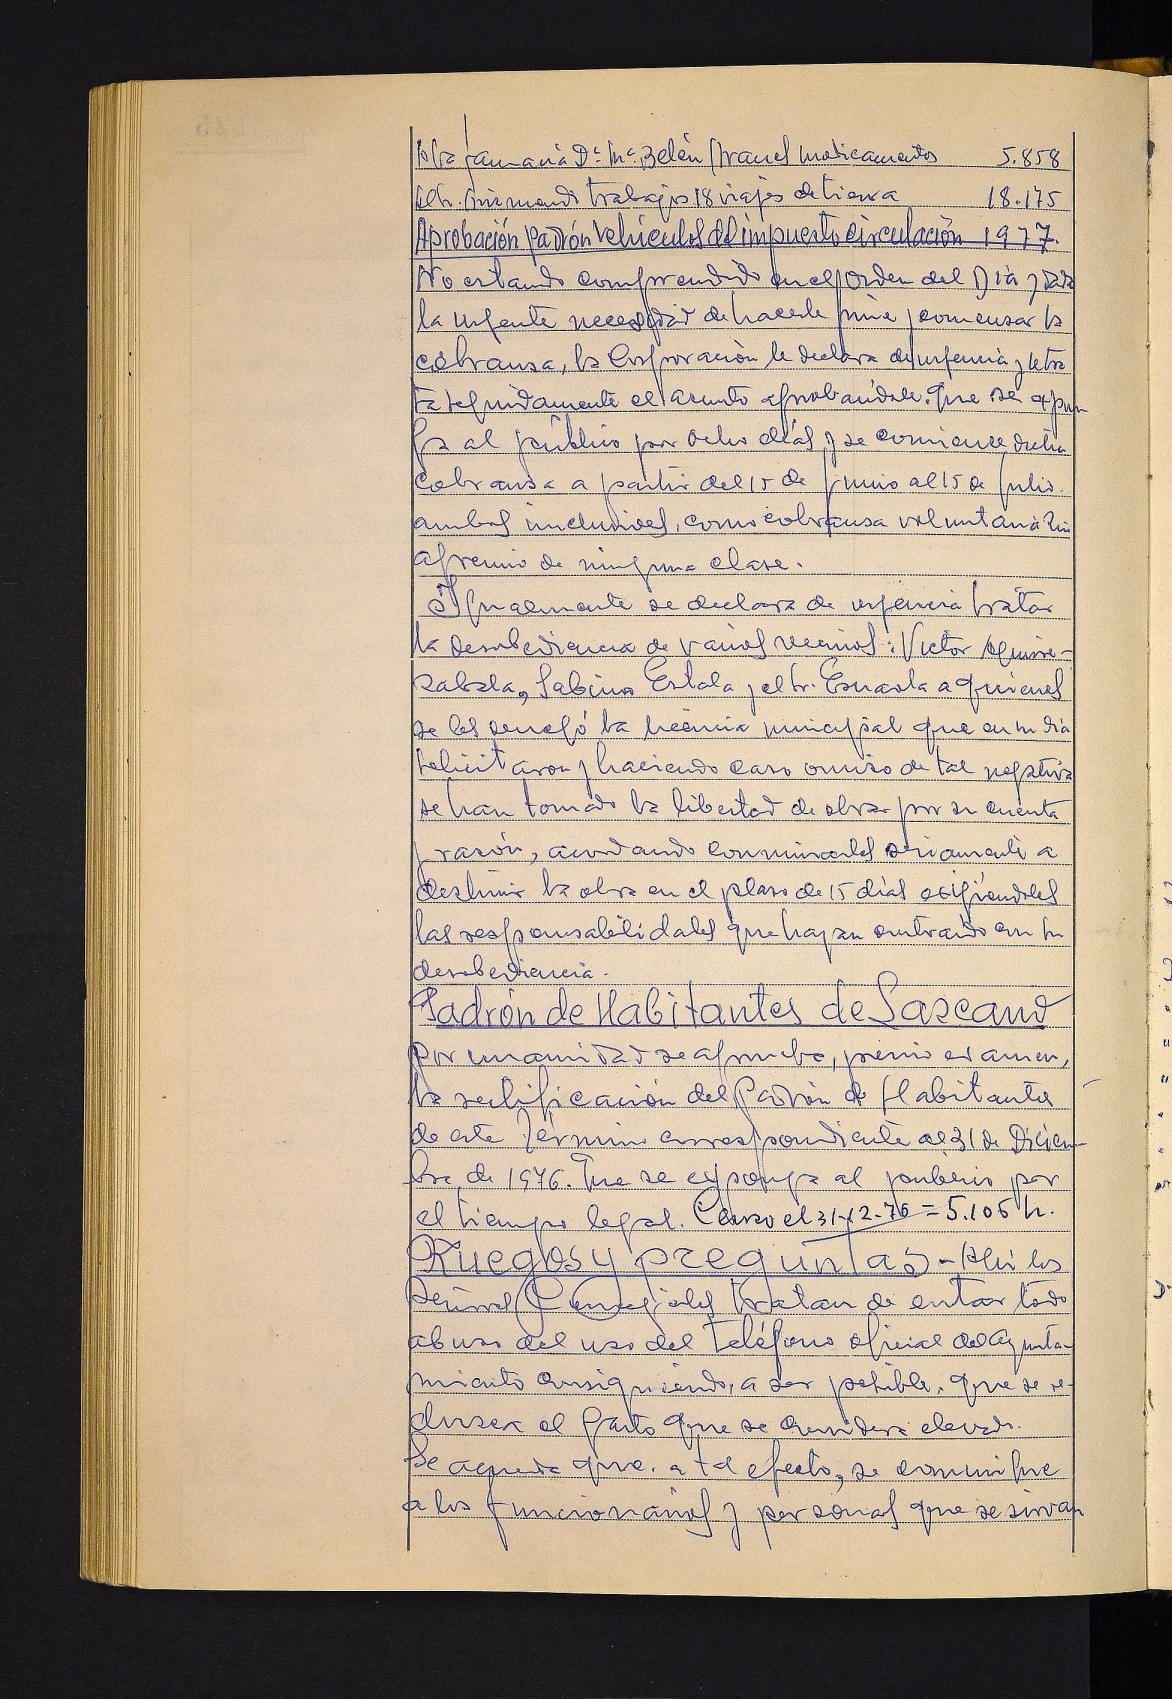 farmacia Dª Mª Belén medicamentos 5.858
trabajos 18 viajes de tierra 18.175
Aprobación padrón vehículos del impuesto circulación 1977.
No estando comprendido en el Orden del Día y dada
la urgente necesidad de hacerle firme y comenzar la
cobranza, la Corporación le declara de urgencia y se tra
ta seguidamente el asunto aprobándole. Que se expon
ga al público por ocho días y se comience dicha
cobranza a partir del 15 de Junio al 15 de Julio
ambos inclusives, como cobranza voluntaria sin
apremio de ninguna clase.
Igualmente se declara de urgencia tratar
la desobediencia de varios vecinos: Victor Aguirre-
zabala, Sabino Estala y el Sr. a quienes
se les denegó la licencia municipal que en su día
solicitaron y haciendo caso omiso de tal negativa
se han tomado la libertad de obrar por su cuenta
y razón, acordando conminarles seriamente a
destruir la obra en el plazo de 15 días exigiendoles
las responsabilidades que hayan contraido en su
desobediencia.
Padrón de Habitantes de Lazcano
Por unanimidad se aprueba, previo examen,
la rectificación del Padrón de Habitantes
de este Término correspondiente al 31 de Diciem-
bre de 1976. Que se exponga al público por
el tiempo legal. Censo el 31-12-76 = 5.106 h.
Ruegos y preguntas - Allí los
Señores Concejales tratan de evitar todo
abuso del uso del teléfono oficial del Ayunta-
miento consiguiendo, a ser posible, que se re-
duzca el gasto que se considera elevado.
Se acuerda que, a tal efecto, se comunique
a los funcionarios y personas que se sirvan